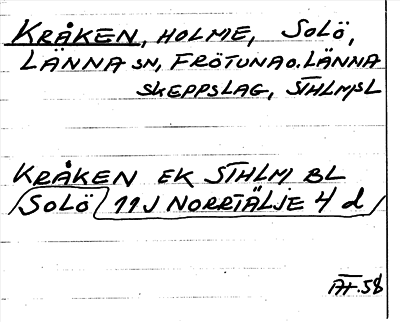 KRÅKEN, HOLME, SOLÖ,
LÄNNA SN, FRÖTUNA O. LÄNNA
SKEPPSLAG, STHLMSL
KRÅKEN EK STHLM BL
SOLÖ 11J NORRTÄLJE 4 d
AH.58